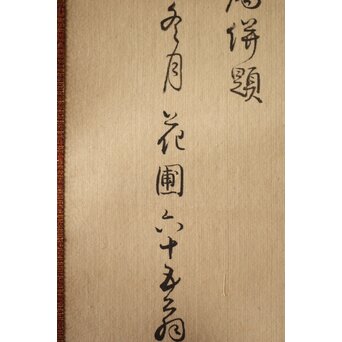 併題
冬月花圃六十五翁